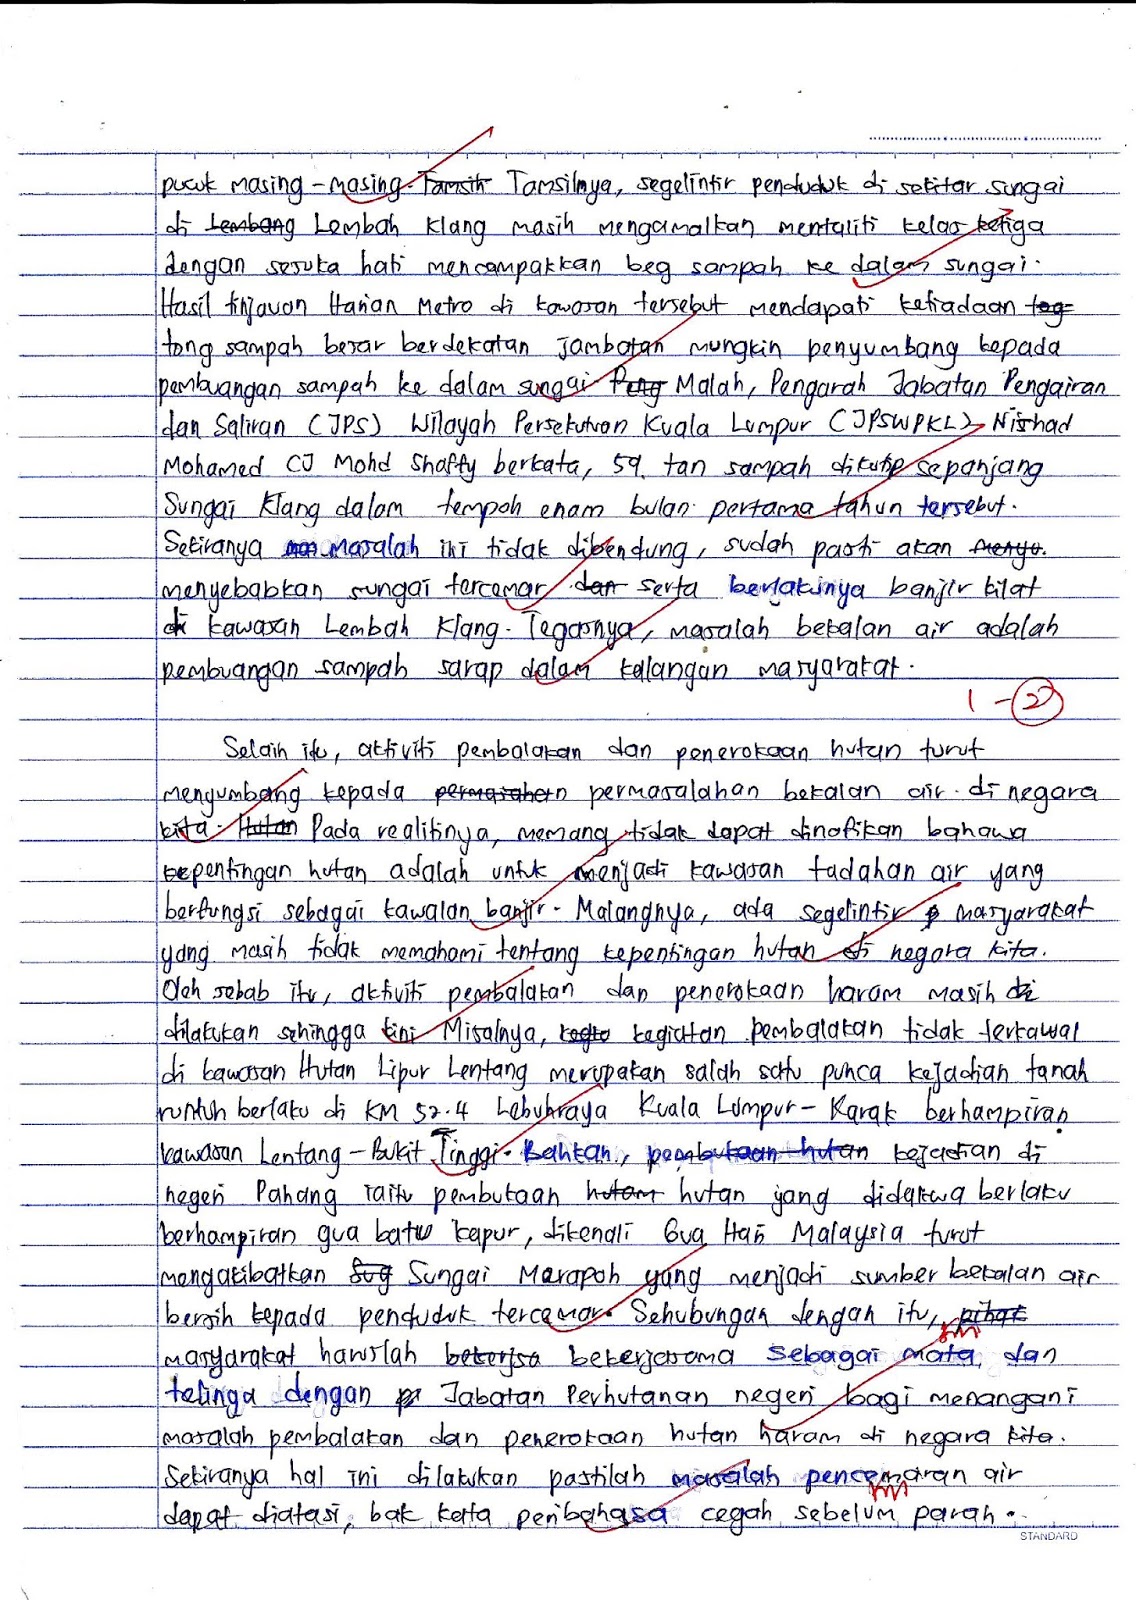 pucuk masing-masing. Tamsih Tamsilnya, segelintir penduduk di sekitar sungai
di Lembang Lembah Klang masih mengamalkan mentaliti kelas ketiga
dengan sesuka hati mencampakkan beg sampah ke dalam sungai.
Hasil tinjauan Harian Metro di kawasan tersebut mendapati ketiadaan tog
tong sampah besar berdekatan jambatan mungkin penyumbang kepada
pembuangan sampah ke dalam sungai. Peng Malah, Pengarah Jabatan Pengairan
dan Saliran (JPS) Wilayah Persekutuan Kuala Lumpur (JPSWPKL) Nishad
Mohamed CJ Mohd Shaffy berkata, 59 tan sampah dikutip sepanjang
Sungai Klang dalam tempoh enam bulan pertama tahun tersebut.
Sekiranya masalah ini tidak dibendung, sudah pasti akan menye
menyebabkan sungai tercemar dan serta berlakunya banjir kilat
di kawasan Lembah Klang. Tegasnya, masalah bekalan air adalah
pembuangan sampah sarap dalam kalangan masyarakat.
1 - 2
Selain itu, aktiviti pembalakan dan penerokaan hutan turut
menyumbang kepada permasahern permasalahan bekalan air di negara
kita. Hutan Pada realitinya, memang tidak dapat dinafikan bahawa
kepentingan hutan adalah untuk menjadi kawasan tadahan air yang
berfungsi sebagai kawalan banjir. Malangnya, ada segelintir p masyarakat
yang masih tidak memahami tentang kepentingan hutan di negara kita.
Oleh sebab itu, aktiviti pembalakan dan penerokaan haram masih di
dilakukan sehingga kini. Misalnya, kegiatan pembalakan tidak terkawal
di kawasan Hutan Lipur Lentang merupakan salah satu punca kejadian tanah
runtuh berlaku di KM 52.4 Lebuhraya Kuala Lumpur-Karak berhampiran
kawasan Lentang-Bukit Tinggi. Bahkan, pembukaan hutan kejadian di
negeri Pahang iaitu pembukaan hutam hutan yang didakwa berlaku
berhampiran gua batu kapur, dikenali Gua Hari Malaysia turut
mengakibatkan Sug Sungai Merapoh yang menjadi sumber bekalan air
bersih kepada penduduk tercemar. Sehubungan dengan itu, pihak
masyarakat haruslah bekerjsa bekerjasama sebagai mata dan
telinga dengan p Jabatan Perhutanan negeri bagi menangani
masalah pembalakan dan penerokaan hutan haram di negara kita.
Sekiranya hal ini dilakukan pastilah masalah pencemaran air
dapat diatasi, bak kata peribahasa cegah sebelum parah.
STANDARD